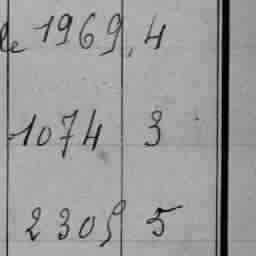 le 1969, 4
1074 3
2309 5